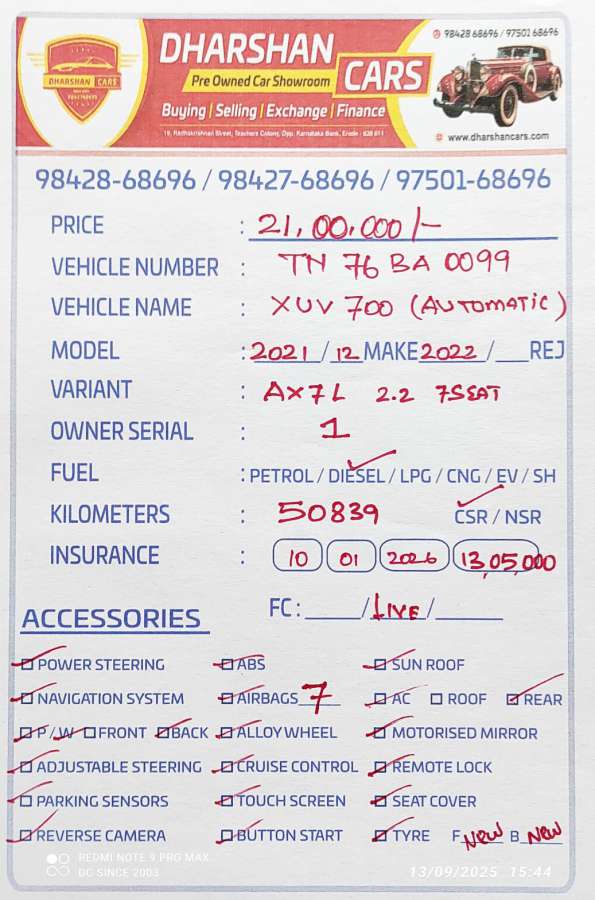 DHARSHAN CARS
98428 68696 / 97501 68696
DHARSHAN CARS
Pre Owned Car Showroom
Buying | Selling | Exchange | Finance
www.dharshancars.com
98428-68696 / 98427-68696 / 97501-68696
PRICE : 21,00,000/-
VEHICLE NUMBER : TN 76 BA 0099
VEHICLE NAME : XUV 700 (AUTOMATIC)
MODEL : 2021/12 MAKE 2022/___REJ
VARIANT : AX7L 2.2 7SEAT
OWNER SERIAL : 1
FUEL : PETROL / DIESEL / LPG / CNG / EV / SH
KILOMETERS : 50839 CSR / NSR
INSURANCE : 10 01 2026 13,05,000
ACCESSORIES FC : ____/LIVE/____
POWER STEERING ABS SUN ROOF
NAVIGATION SYSTEM AIRBAGS 7 AC ROOF REAR
P / W FRONT BACK ALLOY WHEEL MOTORISED MIRROR
ADJUSTABLE STEERING CRUISE CONTROL REMOTE LOCK
PARKING SENSORS TOUCH SCREEN SEAT COVER
REVERSE CAMERA BUTTON START TYRE F NEW B NEW
REDMI NOTE 9 PRO MAX
DC SINCE 2003
13/09/2025 15:44